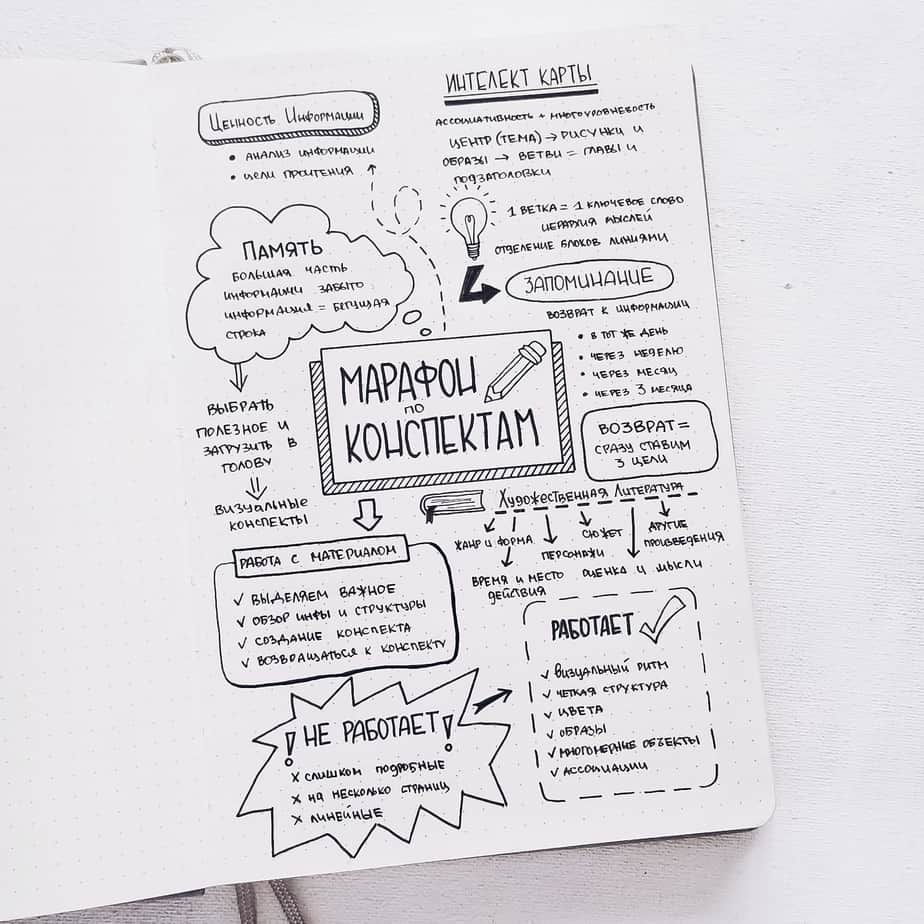 Ценность Информации
• анализ информации
• цели прочтения
Память
большая часть
информации забыто
информация = бегущая
строка
выбрать
полезное и
загрузить в
голову
визуальные
конспекты
ИНТЕЛЕКТ КАРТЫ
ассоциативность + многоуровневость
центр (тема) → рисунки и
образы → ветви = главы и
подзаголовки
1 ветка = 1 ключевое слово
иерархия мыслей
отделение блоков линиями
ЗАПОМИНАНИЕ
возврат к информации
• в тот же день
• через неделю
• через месяц
• через 3 месяца
ВОЗВРАТ =
сразу ставим
3 цели
МАРАФОН
ПО
КОНСПЕКТАМ
Художественная Литература
жанр и форма
время и место
действия
персонажи
сюжет
оценка и мысли
другие
произведения
РАБОТА С МАТЕРИАЛОМ
✓ выделяем важное
✓ обзор инфы и структуры
✓ создание конспекта
✓ возвращаться к конспекту
! НЕ РАБОТАЕТ !
x слишком подробные
x на несколько страниц
x линейные
РАБОТАЕТ ✓
✓ визуальный ритм
✓ четкая структура
✓ цвета
✓ образы
✓ многомерные объекты
✓ ассоциации